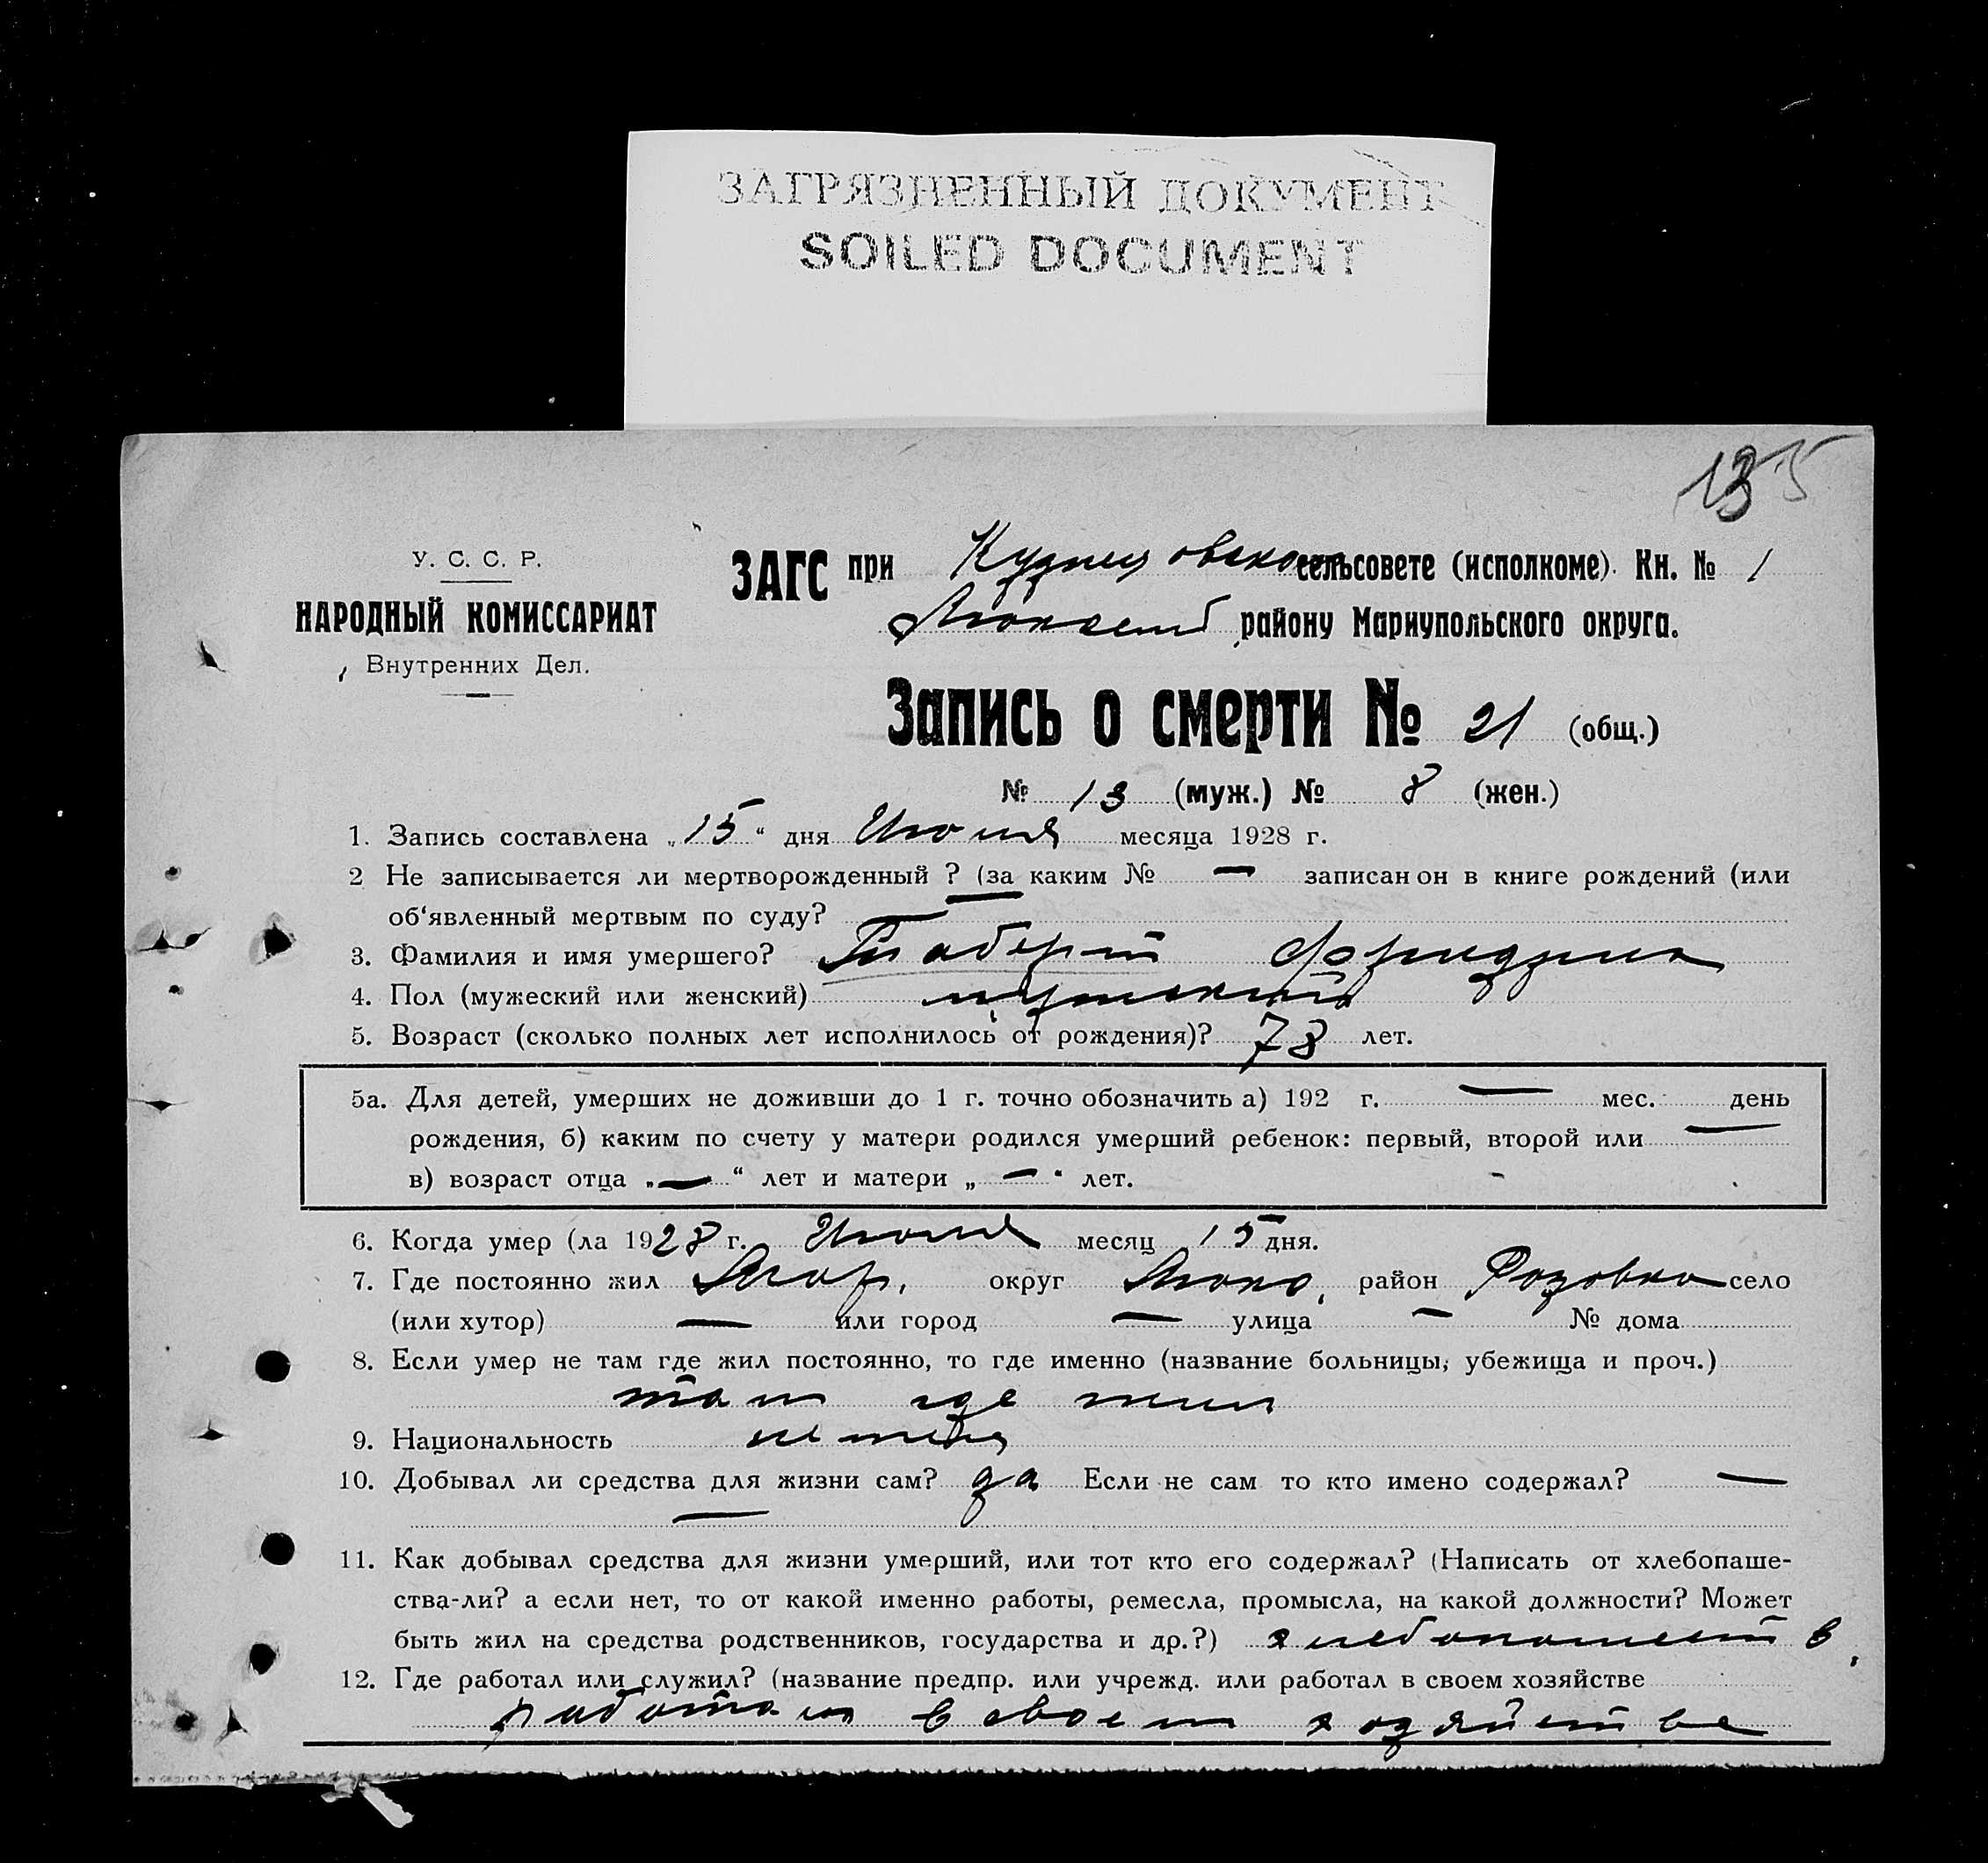 ЗАГРЯЗНЕННЫЙ ДОКУМЕНТ
SOILED DOCUMENT
135
У. С. С. Р.
НАРОДНЫЙ КОМИССАРИАТ
Внутренних Дел.
ЗАГС при Кузнецовском сельсовете (исполкоме). Кн. № 1
району Мариупольского округа.
Запись о смерти № 21 (общ.)
№ 13 (муж.) № 8 (жен.)
1. Запись составлена „15“ дня Июля месяца 1928 г.
2 Не записывается ли мертворожденный ? (за каким № — записан он в книге рождений (или
об‘явленный мертвым по суду? —
3. Фамилия и имя умершего? Таберт Фридрих
4. Пол (мужеский или женский) мужской
5. Возраст (сколько полных лет исполнилось от рождения)? 78 лет.
5а. Для детей, умерших не доживши до 1 г. точно обозначить а) 192 г. — мес. день
рождения, б) каким по счету у матери родился умерший ребенок: первый, второй или —
в) возраст отца „—“ лет и матери „—“ лет.
6. Когда умер (ла 1928 г. Июля месяц 15 дня.
7. Где постоянно жил Мар. округ Люкс. район Розовка село
(или хутор) — или город — улица — № дома
8. Если умер не там где жил постоянно, то где именно (название больницы, убежища и проч.)
там где жил
9. Национальность немец
10. Добывал ли средства для жизни сам? да Если не сам то кто имено содержал? —
—
11. Как добывал средства для жизни умерший, или тот кто его содержал? (Написать от хлебопаше-
ства-ли? а если нет, то от какой именно работы, ремесла, промысла, на какой должности? Может
быть жил на средства родственников, государства и др.?) хлебопашеств.
12. Где работал или служил? (название предпр. или учрежд. или работал в своем хозяйстве
работал в своем хозяйстве